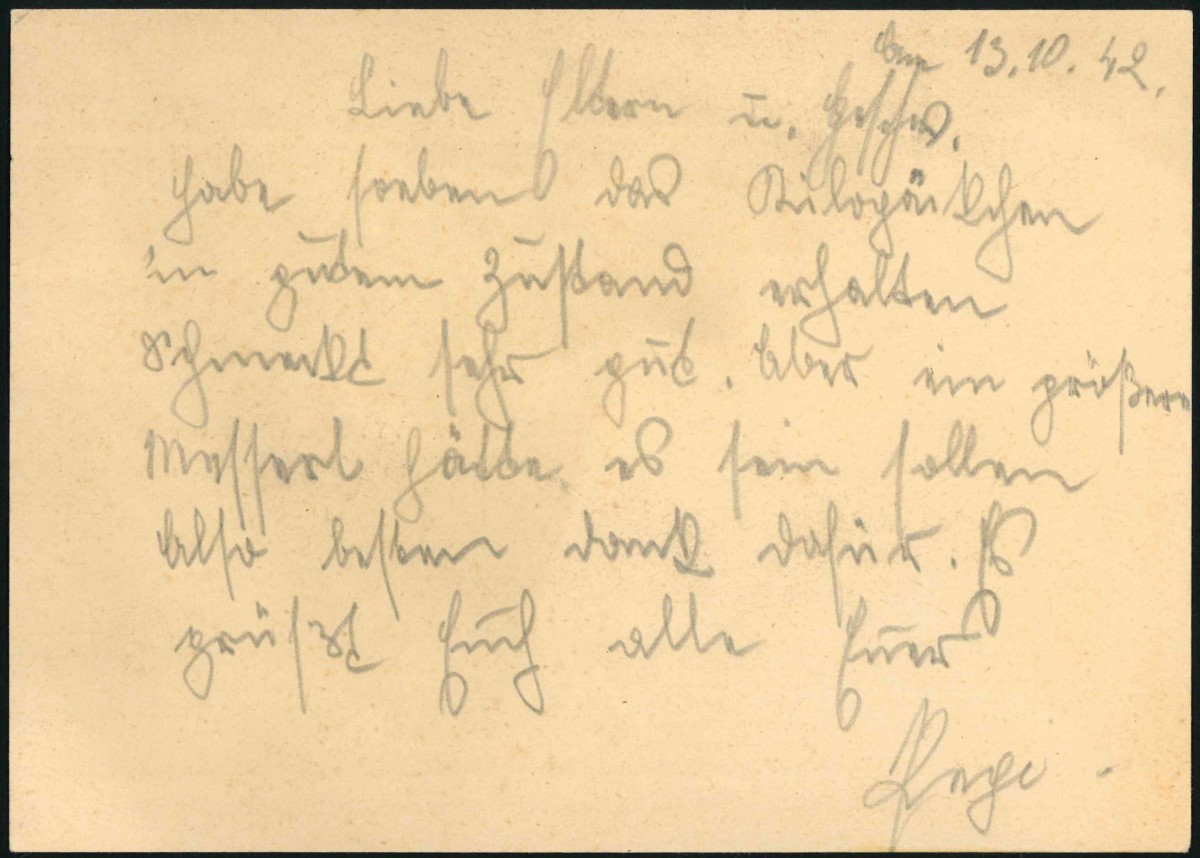 den 13.10.42.
Liebe Eltern u. Geschw.
habe soeben das Kilopäckchen
in gutem Zustand erhalten
Schmeckt sehr gut. Aber ein größeres
Messerl hätte es sein sollen
Also besten dank dafür. Es
grüßt Euch alle Euer